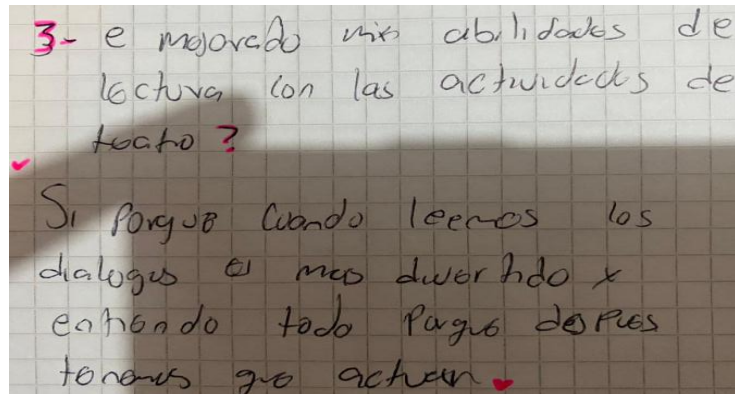 3- e mejorado mis abilidades de
lectura con las actividades de
teatro?
Si porque cuando leemos los
dialogos es mas divertido y
entiendo todo porque despues
tenemos que actuar.